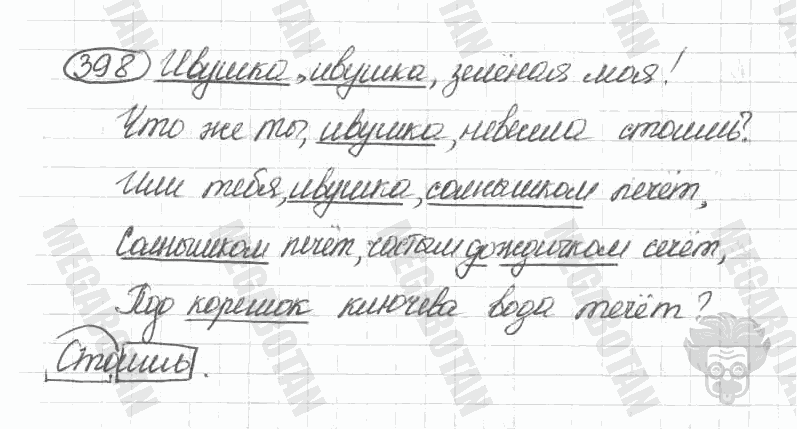 398 Ивушка, ивушка, зелёная моя!
Что же ты, ивушка, невесела стоишь?
Или тебя, ивушка, солнышком печёт,
Солнышком печёт, частым дождичком сечёт,
Под корешок ключева вода течёт?
Стоишь.
MEGABOTAN